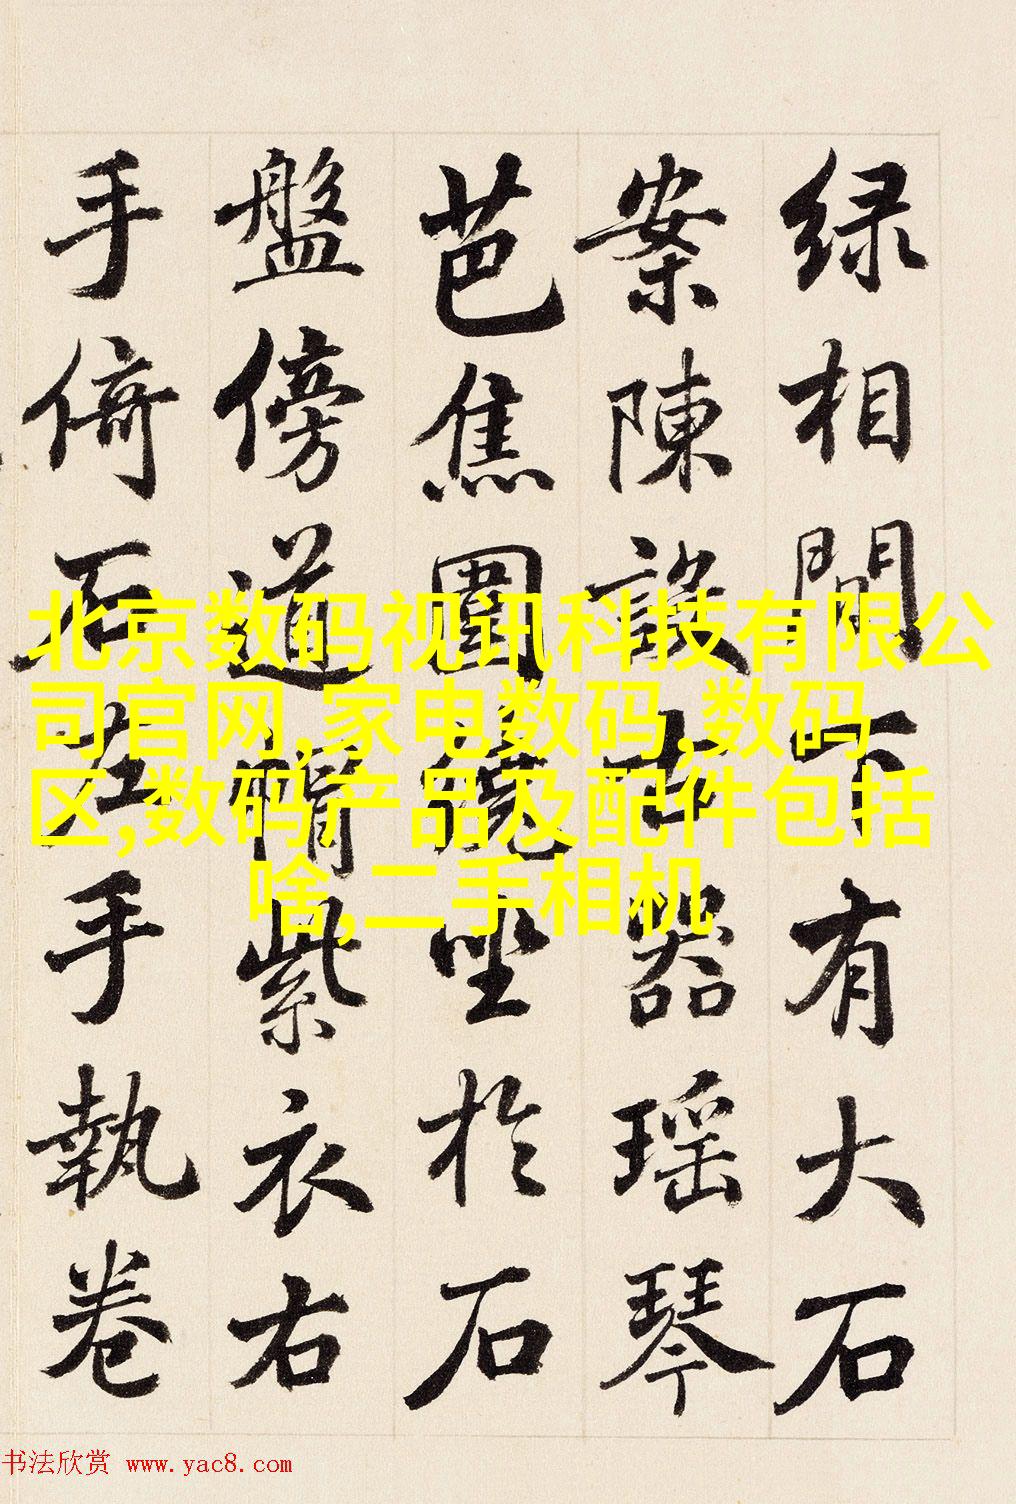 绿相間下有大石
案陳設古器瑶琴
芭焦圍繞坐於石
盤傍道帽紫衣右
手倚石左手執卷
北京数码视讯科技有限公
司官网,家电数码,数码
区,数码产品及配件包括
啥,二手相机
书法欣赏 www.yac8.com